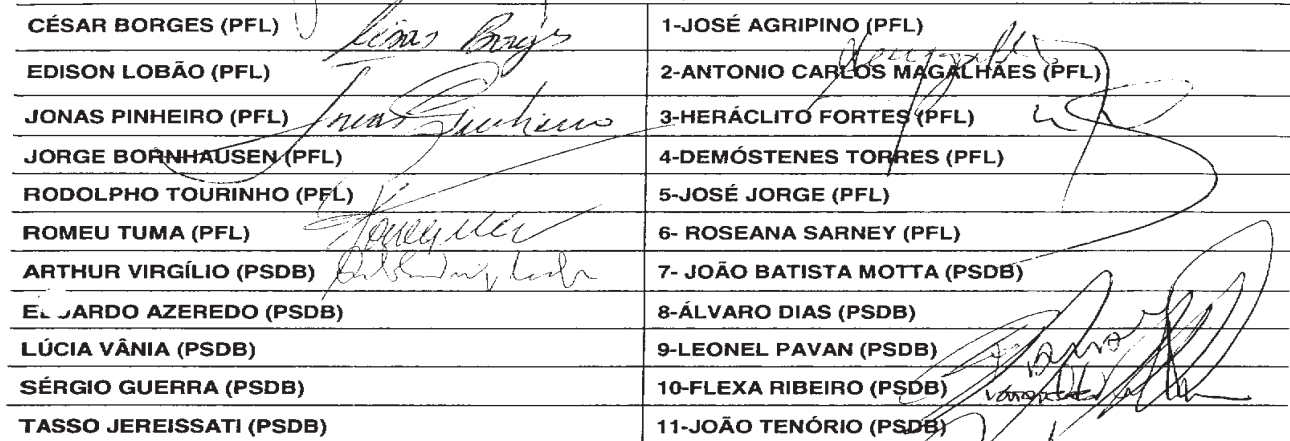 CÉSAR BORGES (PFL) César Borges 1-JOSÉ AGRIPINO (PFL)
EDISON LOBÃO (PFL) 2-ANTONIO CARLOS MAGALHÃES (PFL)
JONAS PINHEIRO (PFL) Jonas Pinheiro 3-HERÁCLITO FORTES (PFL)
JORGE BORNHAUSEN (PFL) 4-DEMÓSTENES TORRES (PFL)
RODOLPHO TOURINHO (PFL) 5-JOSÉ JORGE (PFL)
ROMEU TUMA (PFL) 6- ROSEANA SARNEY (PFL)
ARTHUR VIRGÍLIO (PSDB) 7- JOÃO BATISTA MOTTA (PSDB)
AZEREDO (PSDB) 8-ÁLVARO DIAS (PSDB)
LÚCIA VÂNIA (PSDB) 9-LEONEL PAVAN (PSDB)
SÉRGIO GUERRA (PSDB) 10-FLEXA RIBEIRO (PSDB)
TASSO JEREISSATI (PSDB) 11-JOÃO TENÓRIO (PSDB)